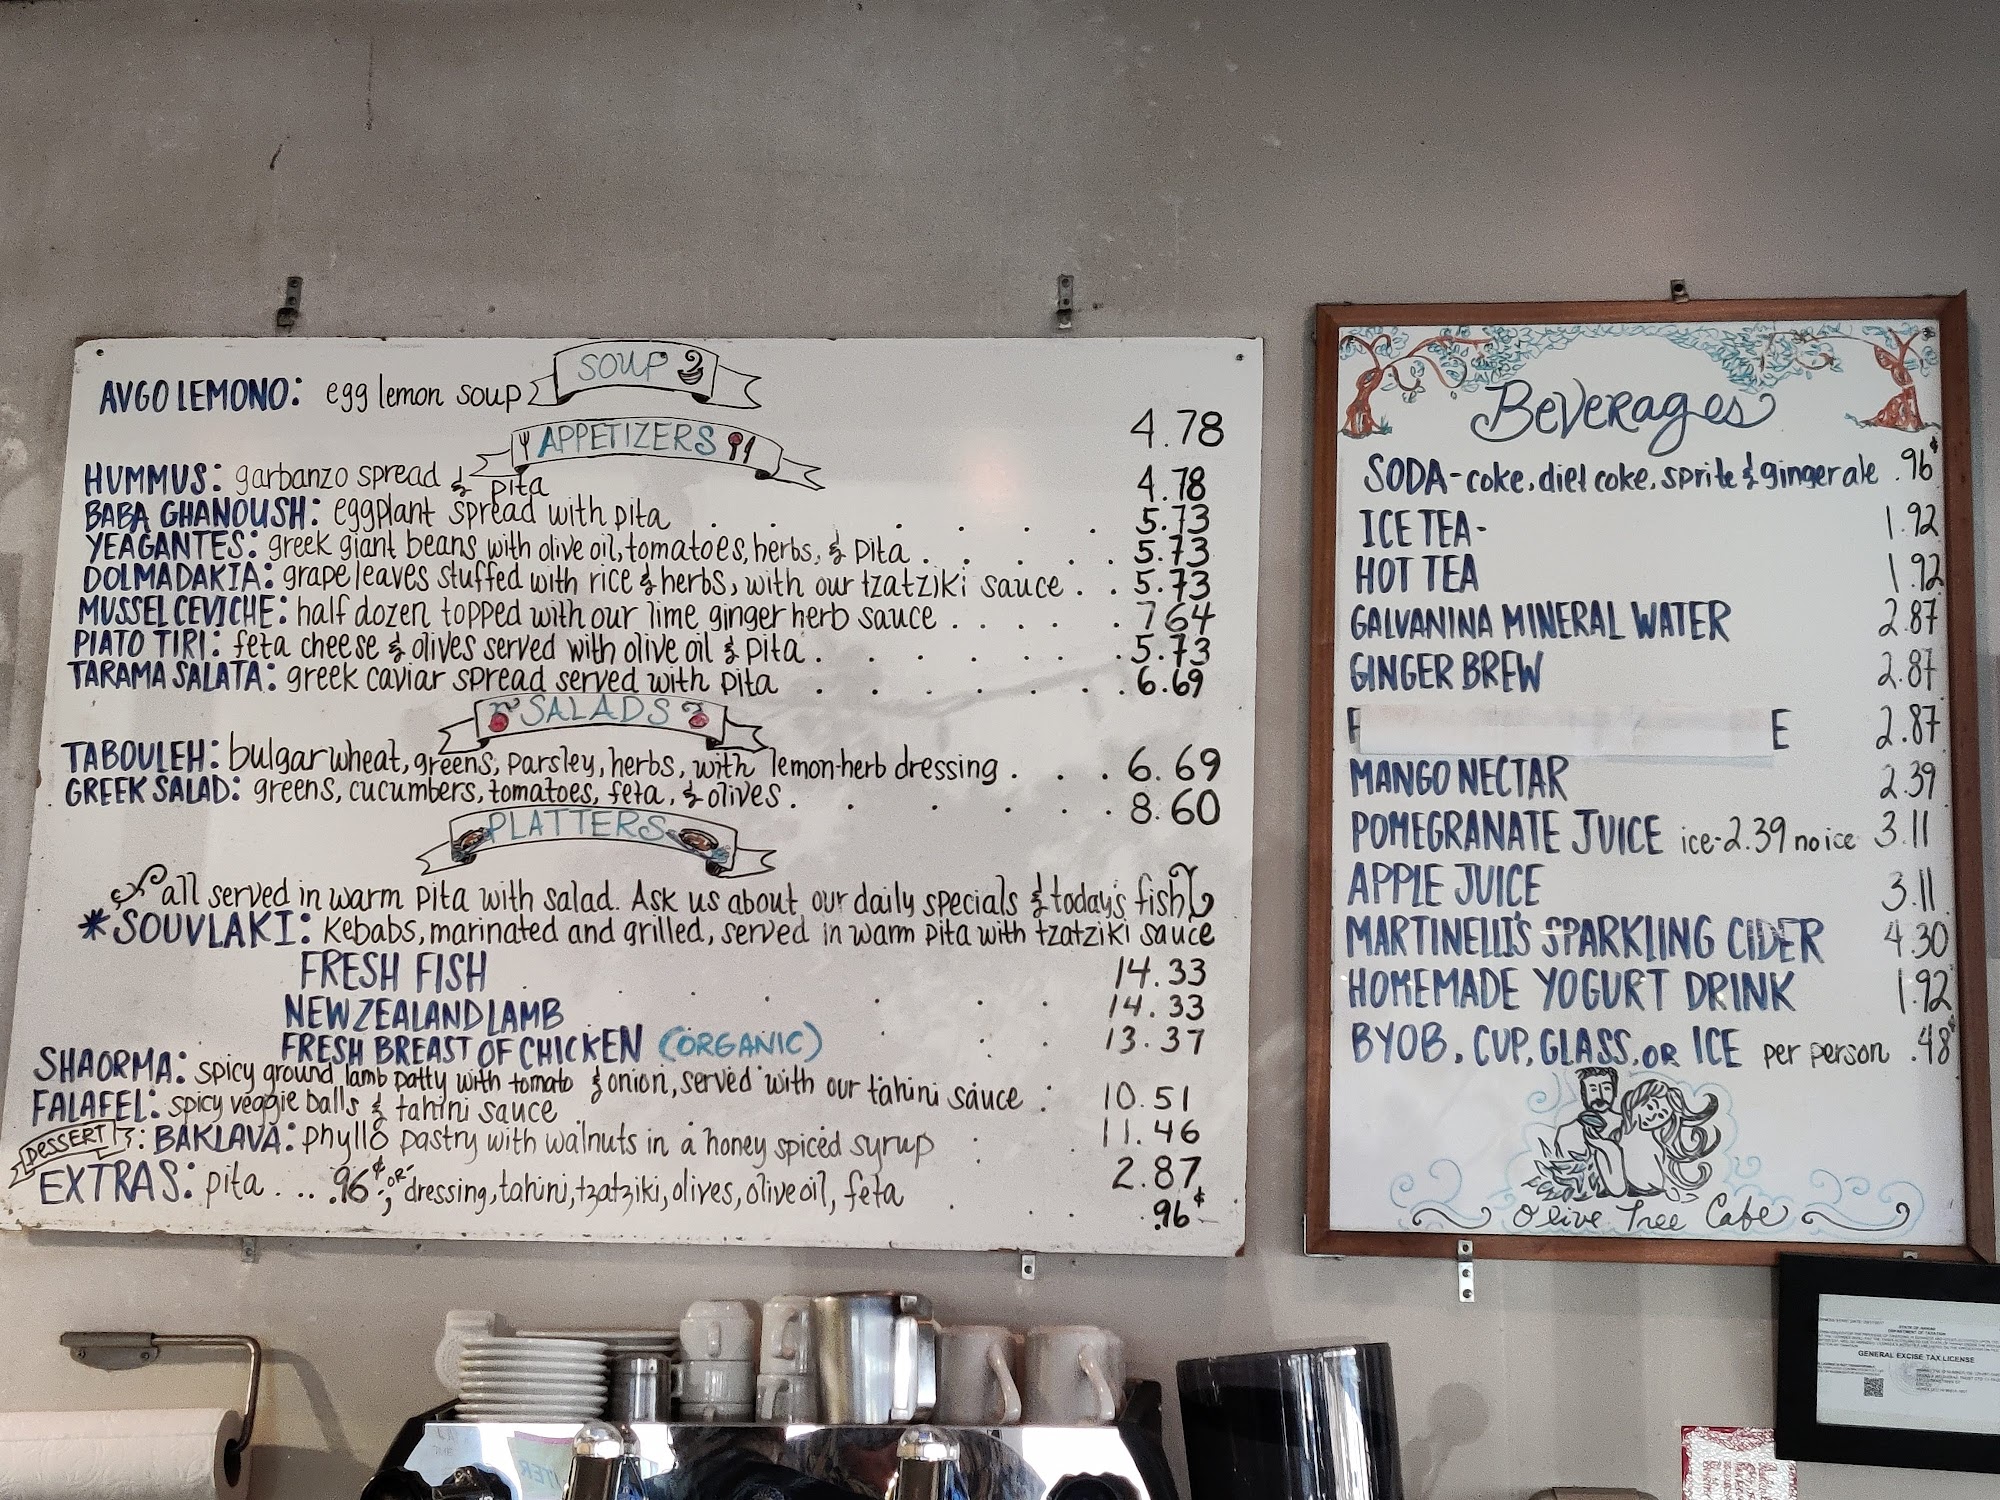 SOUP
AVGO LEMONO: egg lemon soup 4.78
APPETIZERS
HUMMUS: garbanzo spread & pita 4.78
BABA GHANOUSH: eggplant spread with pita . . . . . . 5.73
YEAGANTES: greek giant beans with olive oil, tomatoes, herbs, & pita . . . . . 5.73
DOLMADAKIA: grape leaves stuffed with rice & herbs, with our tzatziki sauce . . 5.73
MUSSEL CEVICHE: half dozen topped with our lime ginger herb sauce . . . . . 7 64
PIATO TIRI: feta cheese & olives served with olive oil & pita . . . . . . . 5.73
TARAMA SALATA: greek caviar spread served with pita . . . . . . 6.69
SALADS
TABOULEH: bulgar wheat, greens, parsley, herbs, with lemon-herb dressing . . . 6.69
GREEK SALAD: greens, cucumbers, tomatoes, feta, & olives . . . . . 8.60
PLATTERS
all served in warm pita with salad. Ask us about our daily specials & today's fish
*SOUVLAKI: Kebabs, marinated and grilled, served in warm pita with tzatziki sauce
FRESH FISH . . . . . 14.33
NEW ZEALAND LAMB . . . 14.33
FRESH BREAST OF CHICKEN (ORGANIC) . . 13.37
SHAORMA: spicy ground lamb patty with tomato & onion, served with our tahini sauce : 10.51
FALAFEL: spicy veggie balls & tahini sauce 11.46
DESSERT: BAKLAVA: phyllo pastry with walnuts in a honey spiced syrup : 2.87
EXTRAS: pita . . . .96¢; or dressing, tahini, tzatziki, olives, olive oil, feta . . . .96¢
Beverages
SODA - coke, diet coke, sprite & ginger ale .96¢
ICE TEA - 1.92
HOT TEA 1.92
GALVANINA MINERAL WATER 2.87
GINGER BREW 2.87
E 2.87
MANGO NECTAR 2.39
POMEGRANATE JUICE ice-2.39 no ice 3.11
APPLE JUICE 3.11
MARTINELLI'S SPARKLING CIDER 4.30
HOMEMADE YOGURT DRINK 1.92
BYOB, CUP, GLASS, OR ICE per person .48¢
Olive Tree Cafe
STATE OF HAWAII
DEPARTMENT OF TAXATION
GENERAL EXCISE TAX LICENSE